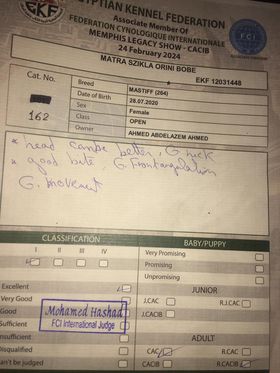 EGYPTIAN KENNEL FEDERATION
Associate Member Of
FEDERATION CYNOLOGIQUE INTERNATIONALE
MEMPHIS LEGACY SHOW - CACIB
24 February 2024
EKF
FCI
MATRA SZIKLA ORINI BOBE
EKF 12031448
Cat. No.
162
Breed MASTIFF (264)
Date of Birth 28.07.2020
Sex Female
Class OPEN
Owner AHMED ABDELAZEM AHMED
* head can be better, G. neck
* good bite, G. Front angulation
G. movement
CLASSIFICATION
BABY/PUPPY
I II III IV
Very Promising
Promising
Unpromising
Excellent
Very Good
Good
Sufficient
Insufficient
Disqualified
Can't be judged
Mohamed Hashad
FCI International Judge
JUNIOR
J.CAC R.J.CAC
J.CACIB
ADULT
CAC R.CAC
CACIB R.CACIB